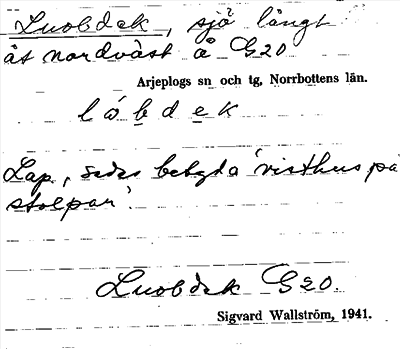 Luobdek, sjö långt
åt nordväst å G20
Arjeplogs sn och tg, Norrbottens län.
lå̀bdek
Lap, sades betyda 'visthus på
stolpar'.
Luobdek G20.
Sigvard Wallström, 1941.